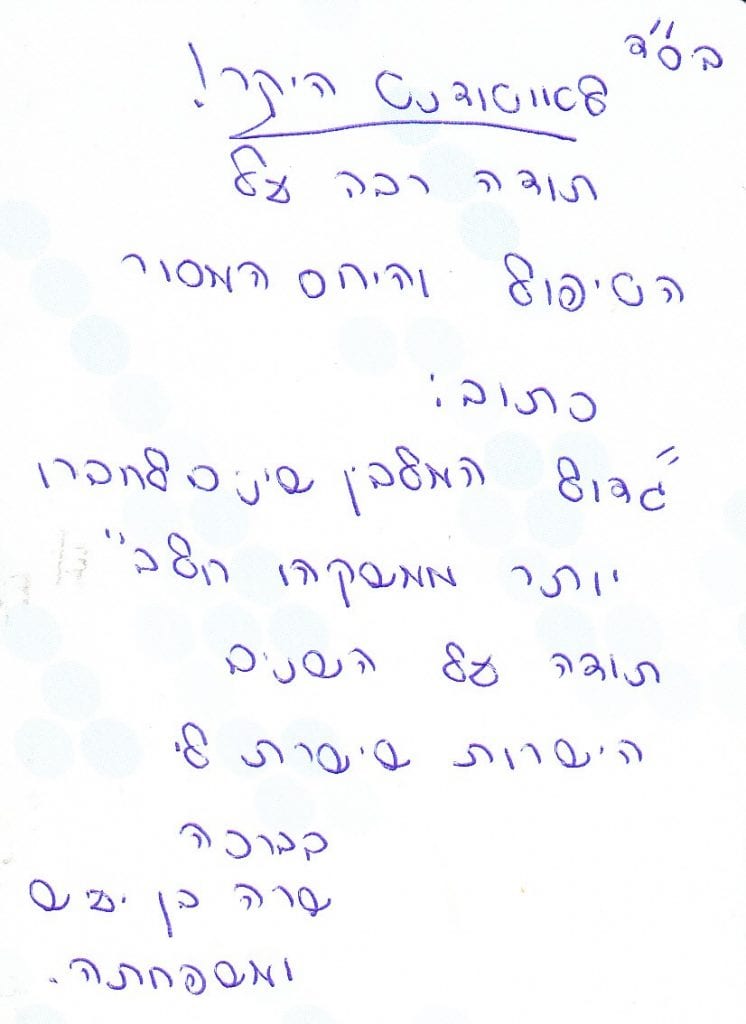 בס"ד
לאווטודנט היקר!
תודה רבה על
הטיפול והיחס המסור
כתוב:
"גדול המלבין שינים לחברו
יותר ממשקהו חלב"
תודה על השנים
הישרות שישרת לי
בברכה
שרה בן יעיש
ומשפחתה.